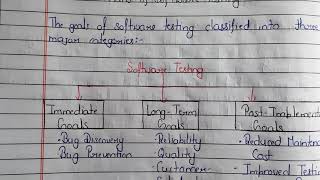 The goals of software testing classified into three
major categories:-
Software Testing
Immediate Long-Term Post-Implemen
Goals Goals Goals
- Bug Discovery - Reliability - Reduced Mainten
Bug Prevention - Quality Cost
- Customer - Improved Testi